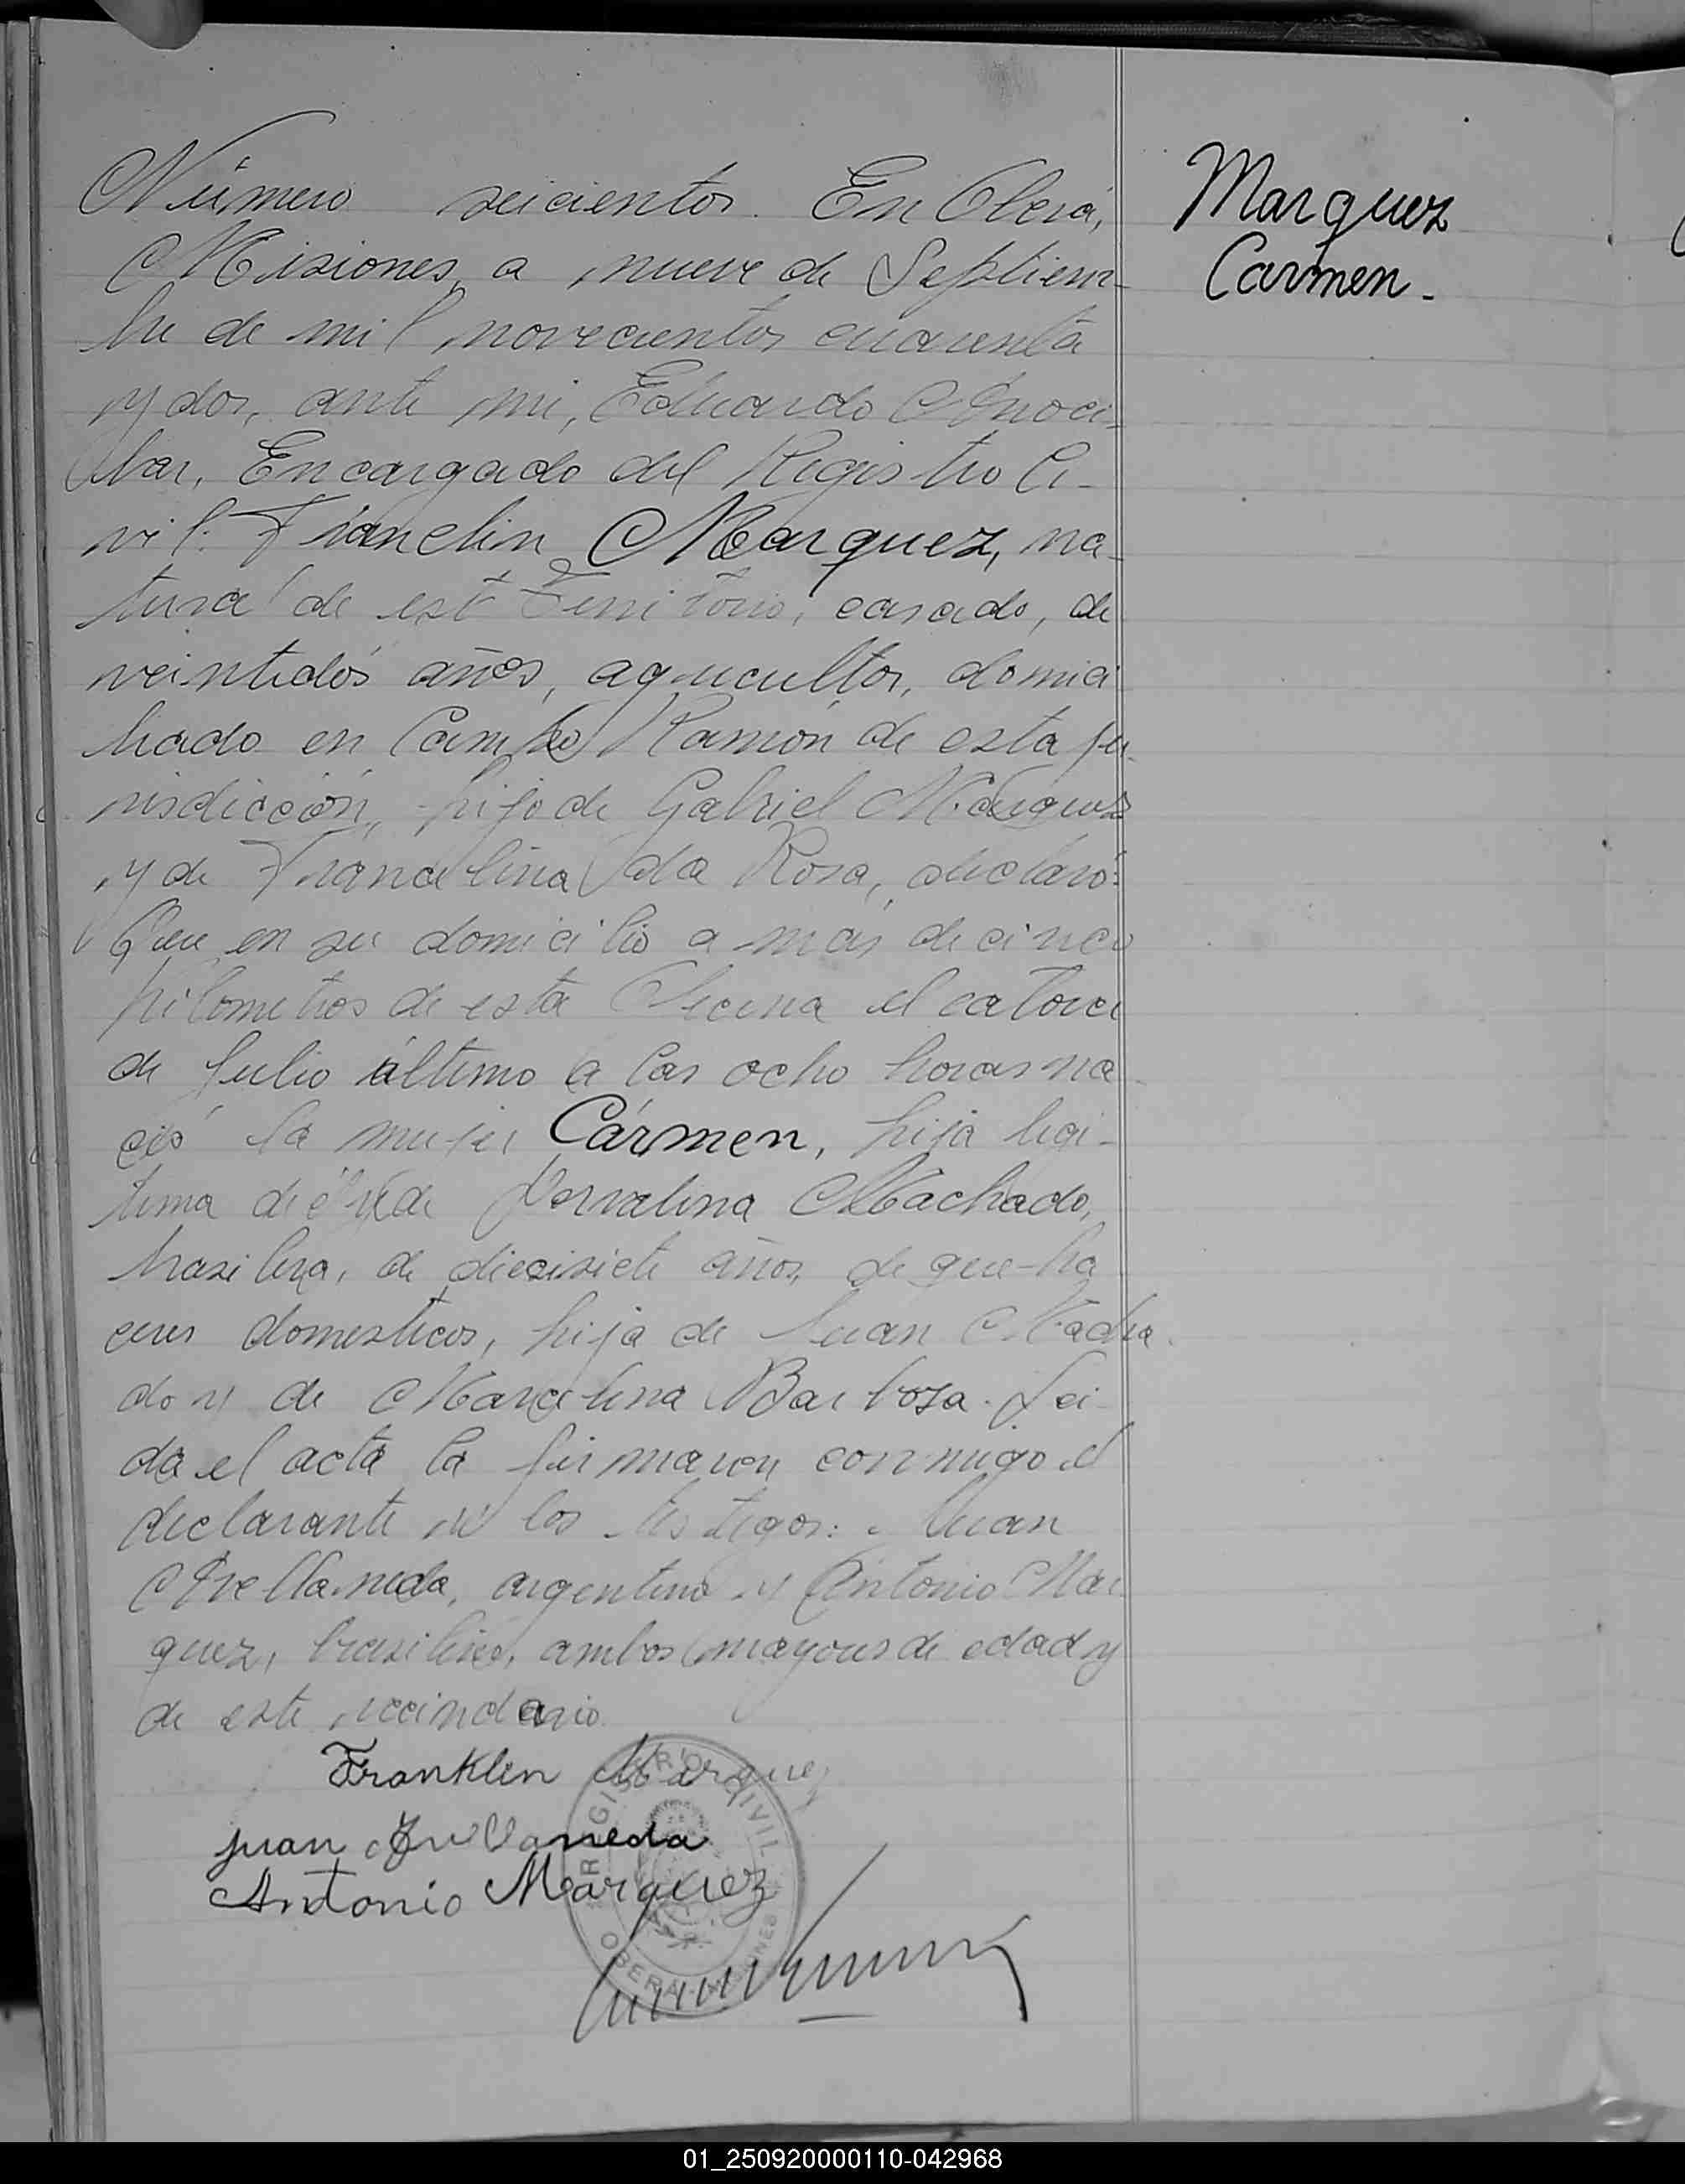 Número seicientos. En Oberá,
Misiones, a nueve de Septiem-
bre de mil novecientos cuarenta
y dos, ante mi, Eduardo Amoci-
bar, Encargado del Registro Ci-
vil: Franclin Marquez, na-
tural de este Territorio, casado, de
veintidós años, agricultor, domici
liado en Campo Ramón de esta ju-
risdicción, hijo de Gabriel Marquez
y de Francelina da Rosa, declaró:
Que en su domicilio a más de cinco
kilometros de esta Oficina el catorce
de Julio último a las ocho horas na-
ció la mujer Cármen, hija legi-
tima de él y de Dorvalina Machado,
brasilera, de diecisiete años, de queha
ceres domesticos, hija de Juan Macha-
do y de Marcelina Barboza. Lei-
da el acta la firmaron conmigo el
declarante y los testigos: Juan
Avellaneda, argentino y Antonio Mar
quez, brasilero, ambos mayores de edad y
de este vecindario.
Marquez
Carmen.-
Franklen Marquez
juan Avellaneda
Antonio Marquez
REGISTRO CIVIL
OBERÁ MISIONES
01_250920000110-042968